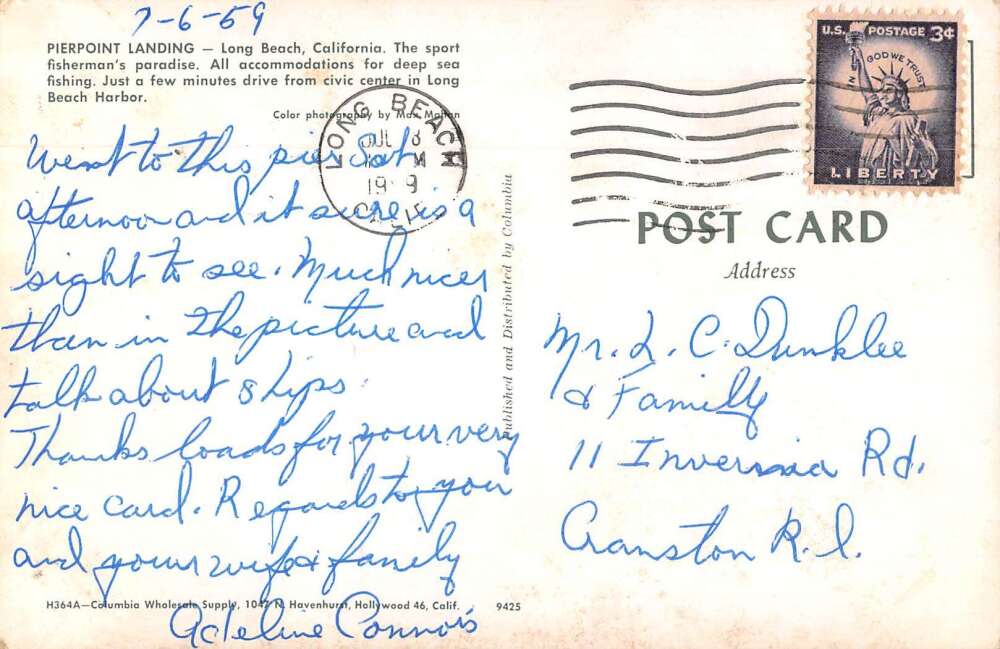 7-6-59
PIERPOINT LANDING — Long Beach, California. The sport
fisherman's paradise. All accommodations for deep sea
fishing. Just a few minutes drive from civic center in Long
Beach Harbor.
Color photography by Max Mahan
Went to this pier Sat
afternoon and it sure is a
sight to see. Much nicer
than in the picture and
talk about ships.
Thanks loads for your very
nice card. Regards to you
and your wife & family
Adeline
H364A—Columbia Wholesale Supply, 1047 N. Havenhurst, Hollywood 46, Calif. 9425
LONG BEACH
JUL
M
19 9
CALIF.
Published and Distributed by Columbia
U.S. POSTAGE 3¢
IN GOD WE TRUST
LIBERTY
POST CARD
Address
Mr. L. C. Dunklee
& Family
11 Rd.
Cranston R.I.